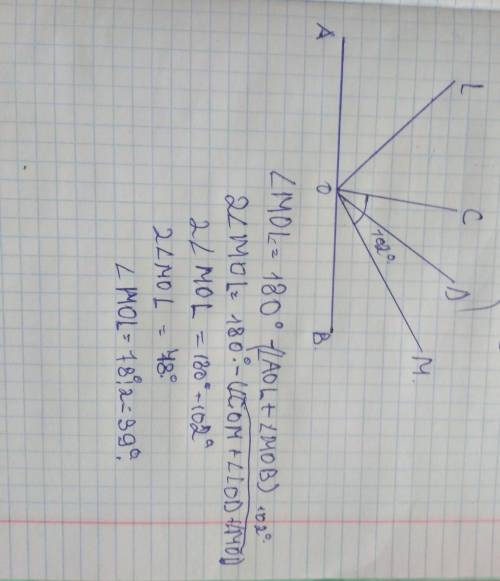 A
L
C
O
102°
D
M.
B.
∠MOL = 180° - (∠AOL + ∠MOB)
102°
2∠MOL = 180° - (∠COM + ∠LOD + ∠MOD
2∠MOL = 180° - 102°
2∠MOL = 78°
∠MOL = 78°:2 = 39°.